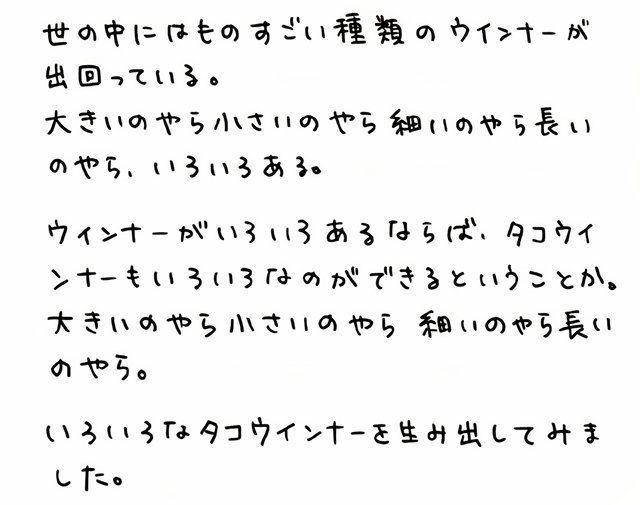 世の中にはものすごい種類のウインナーが
出回っている。
大きいのやら小さいのやら細いのやら長い
のやら、いろいろある。
ウィンナーがいろいろあるならば、タコウイ
ンナーもいろいろなのができるということか。
大きいのやら小さいのやら 細いのやら長い
のやら。
いろいろなタコウインナーを生み出してみま
した。